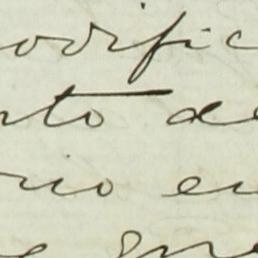 odific
nto de
rio en